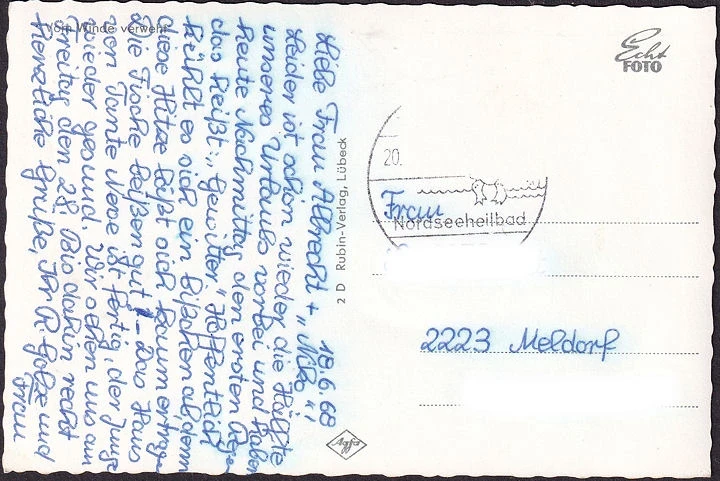 Vom Winde verweht
18.6.68
Liebe Frau Albrecht + "Niko"
Leider ist schon wieder die Hälfte
unseres Urlaubs vorbei und haben
heute Nachmittag den ersten Regen
das heißt: "Gewitter". Hoffentlich
kühlt es sich ein bißchen ab, denn
diese Hitze läßt sich kaum ertragen
Die Fische beißen gut! – Das Haus
von Tante ist fertig, der Junge
wieder gesund. Wir sehen uns am
Freitag den 28. Bis dahin recht
herzliche Grüße, Ihr R. und
Frau
2 D Rubin-Verlag, Lübeck
Agfa
Echt
FOTO
20.
Nordseeheilbad
Frau
2223 Meldorf